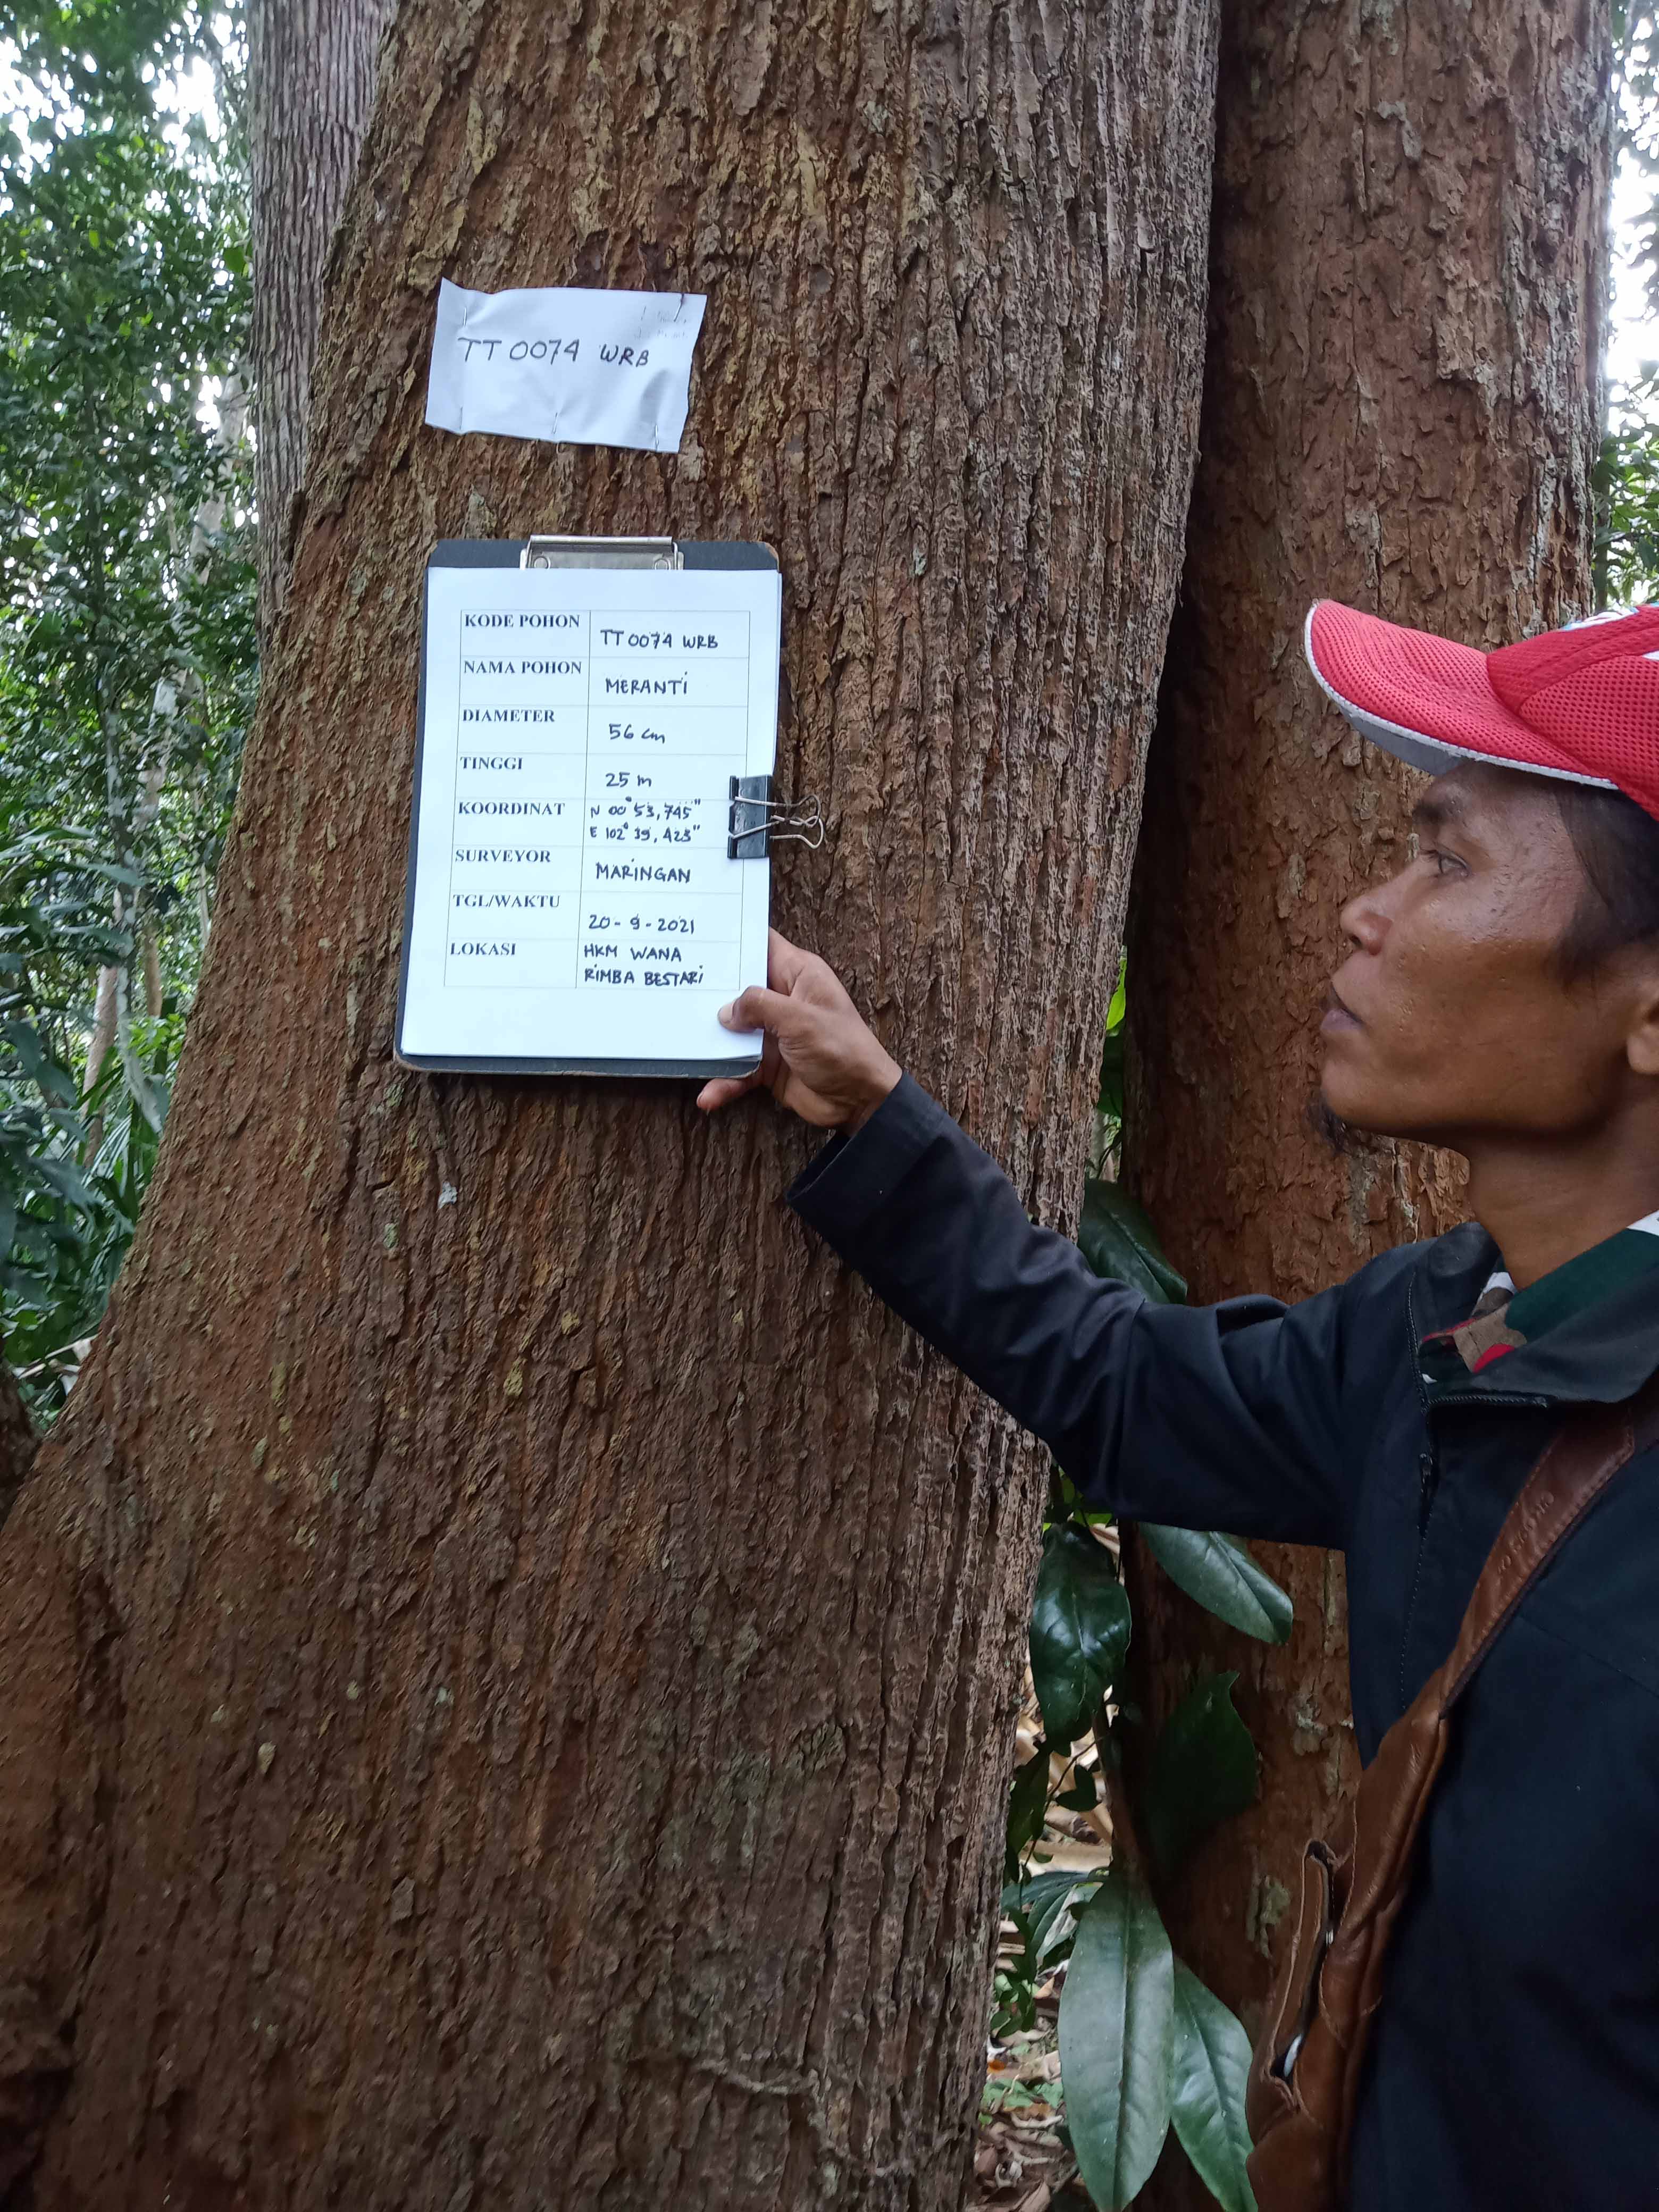 TT 0074 WRB
KODE POHON
TT 0074 WRB
NAMA POHON
MERANTI
DIAMETER
56 cm
TINGGI
25 m
KOORDINAT
N 00° 53,745"
E 102° 39, 423"
SURVEYOR
MARINGAN
TGL/WAKTU
20-9-2021
LOKASI
HKM WANA
RIMBA BESTARI